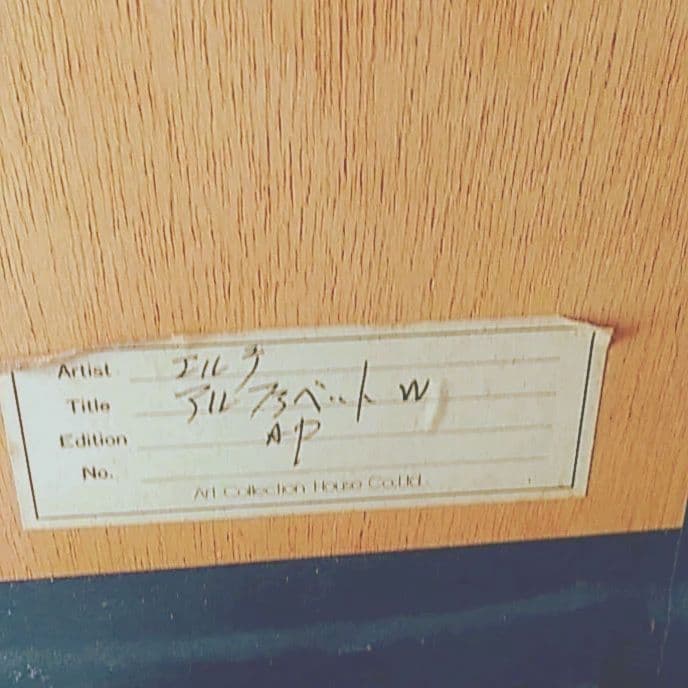 Artist エルテ
Title アルファベット W
Edition AP
No.
Art Collection House Co.,Ltd.